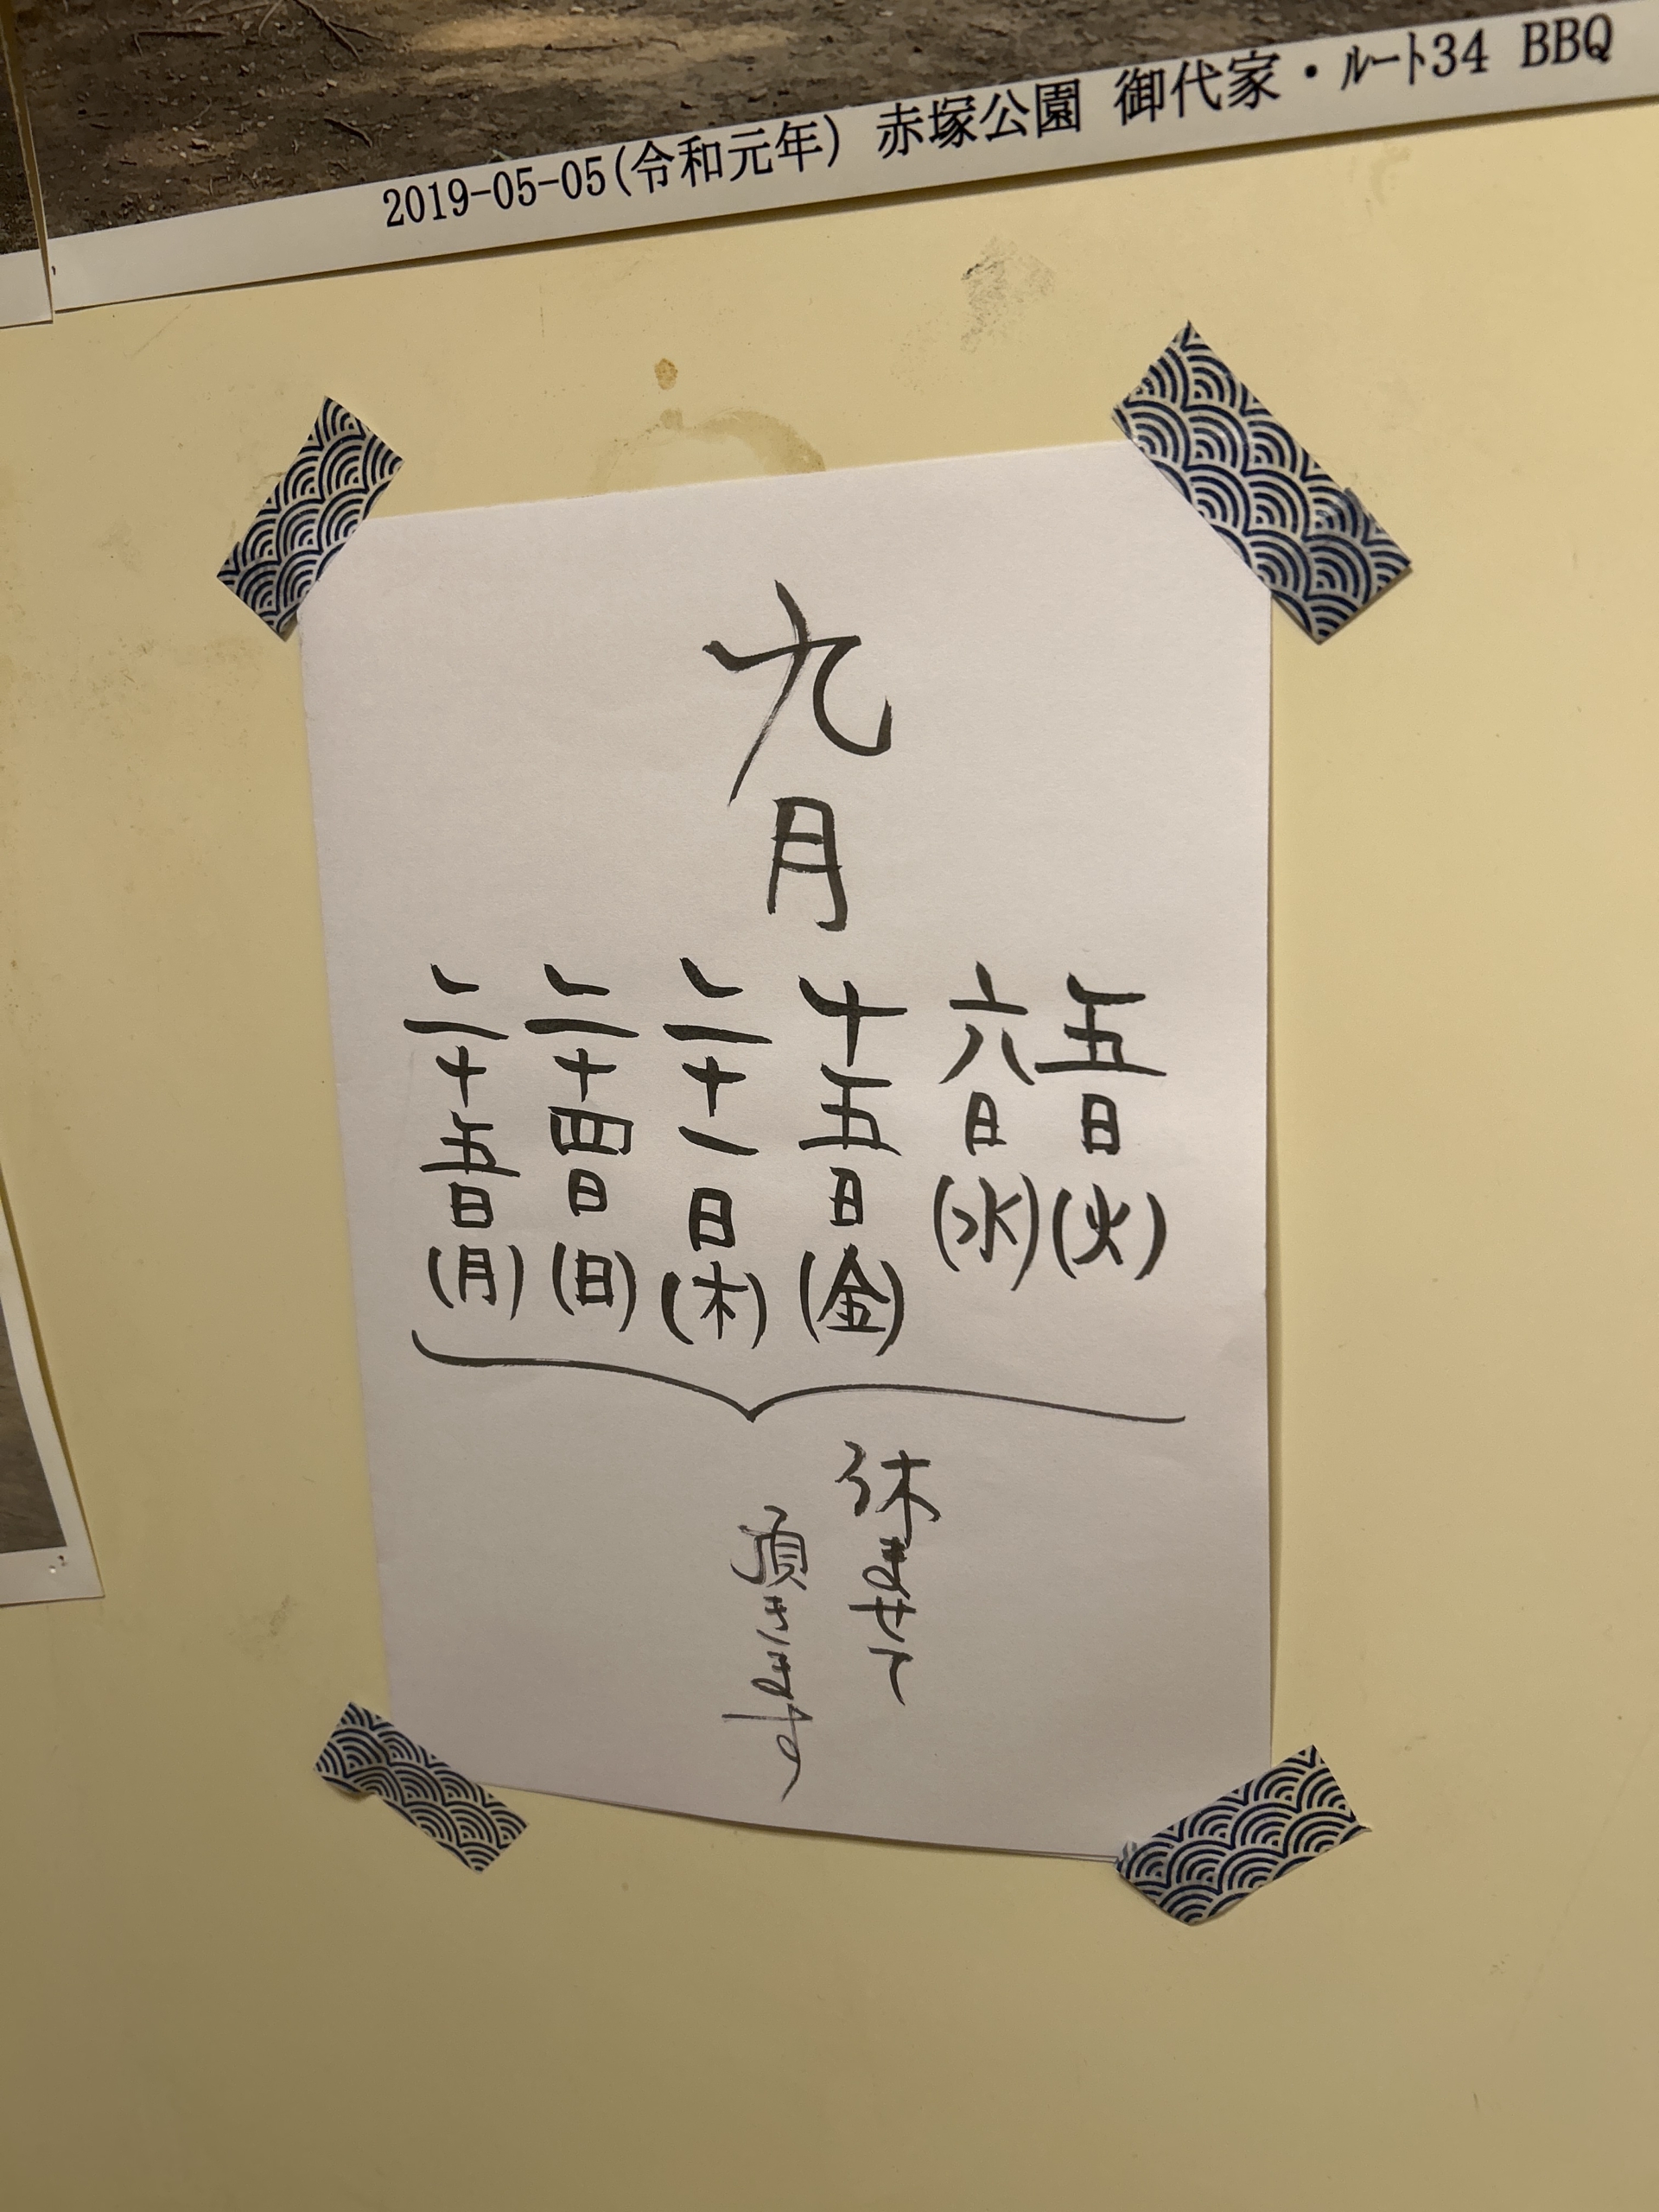 2019-05-05(令和元年) 赤塚公園 御代家・ルート34 BBQ
九月
五日(火)
六日(水)
十五日(金)
二十一日(木)
二十四日(日)
二十五日(月)
休ませて
頂きます